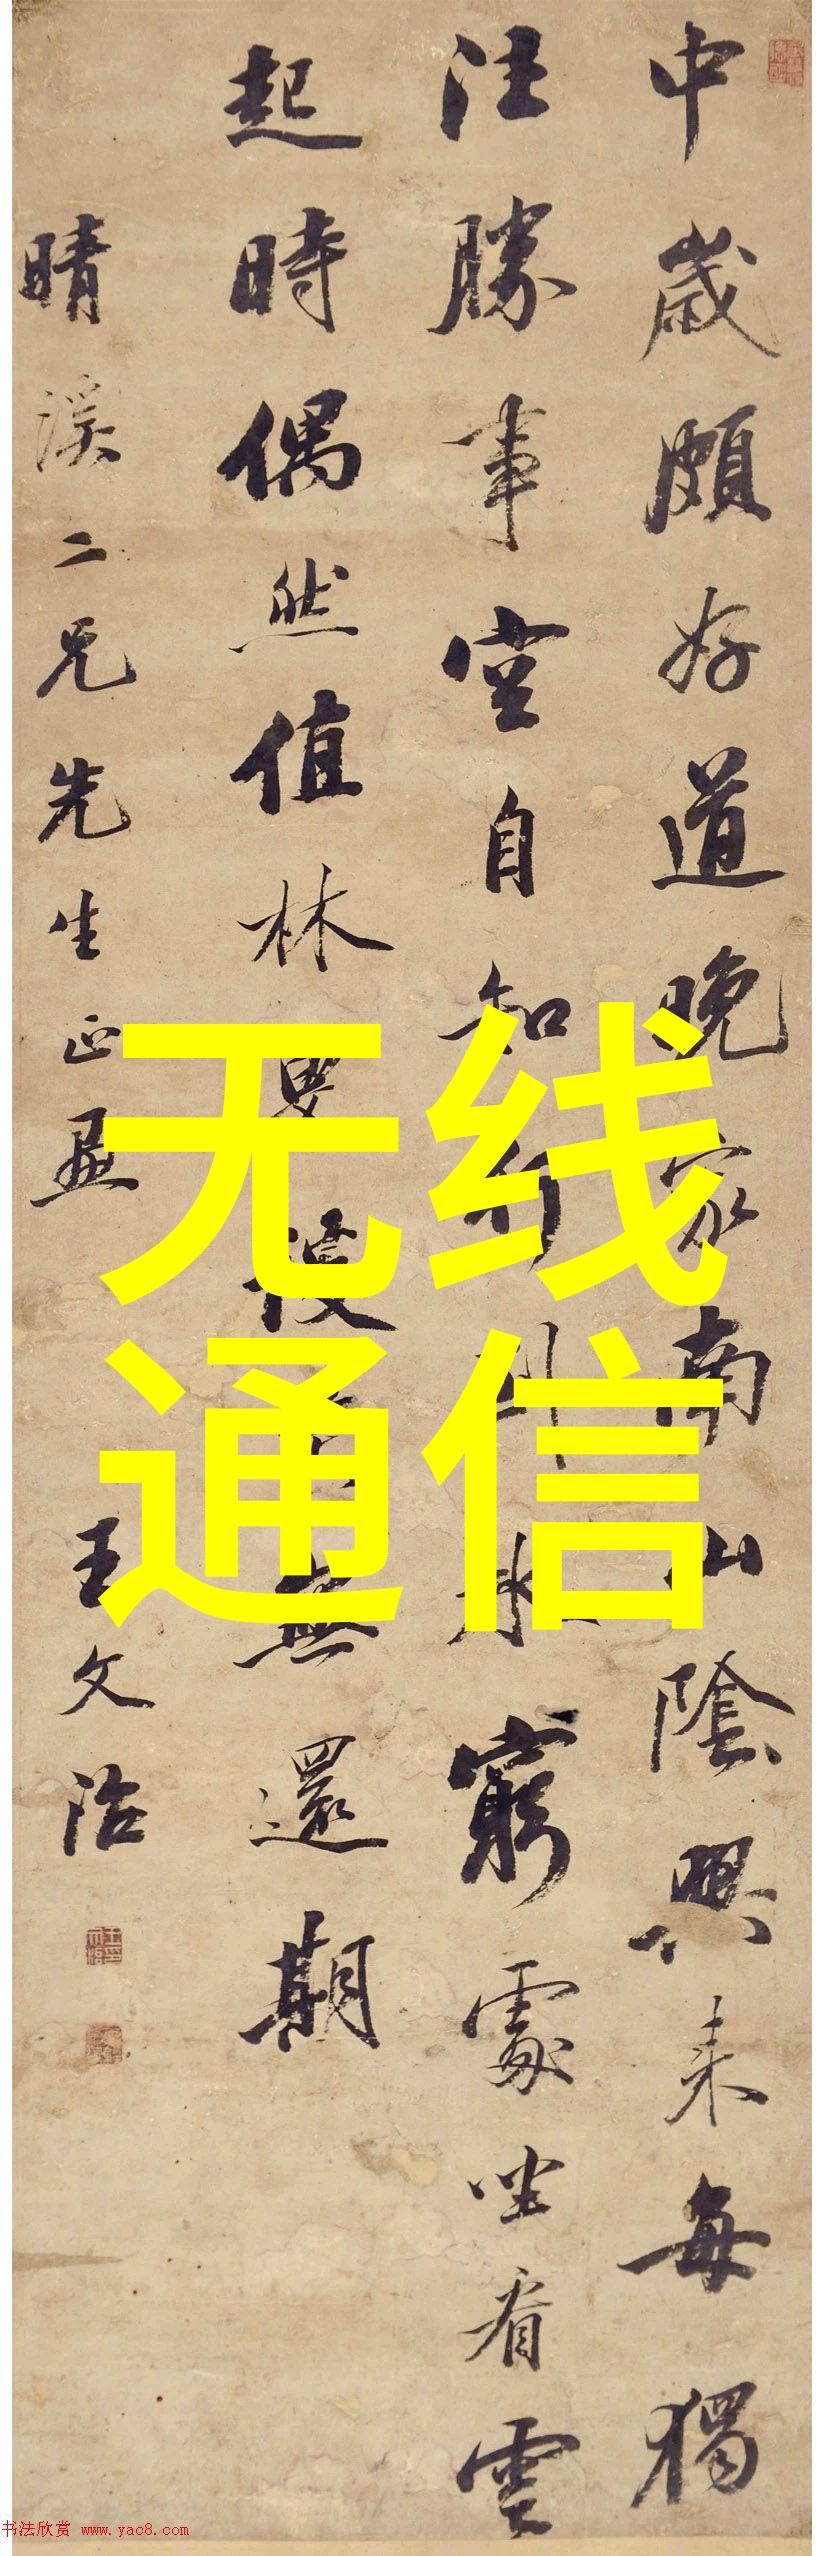 中歲頗好道晚家南山陰興來每獨
往勝事空自知行到水窮處坐看雲
起時偶然值林叟無還期
晴溪二兄先生正
王文治
无线
通信
书法欣赏 www.yac8.com